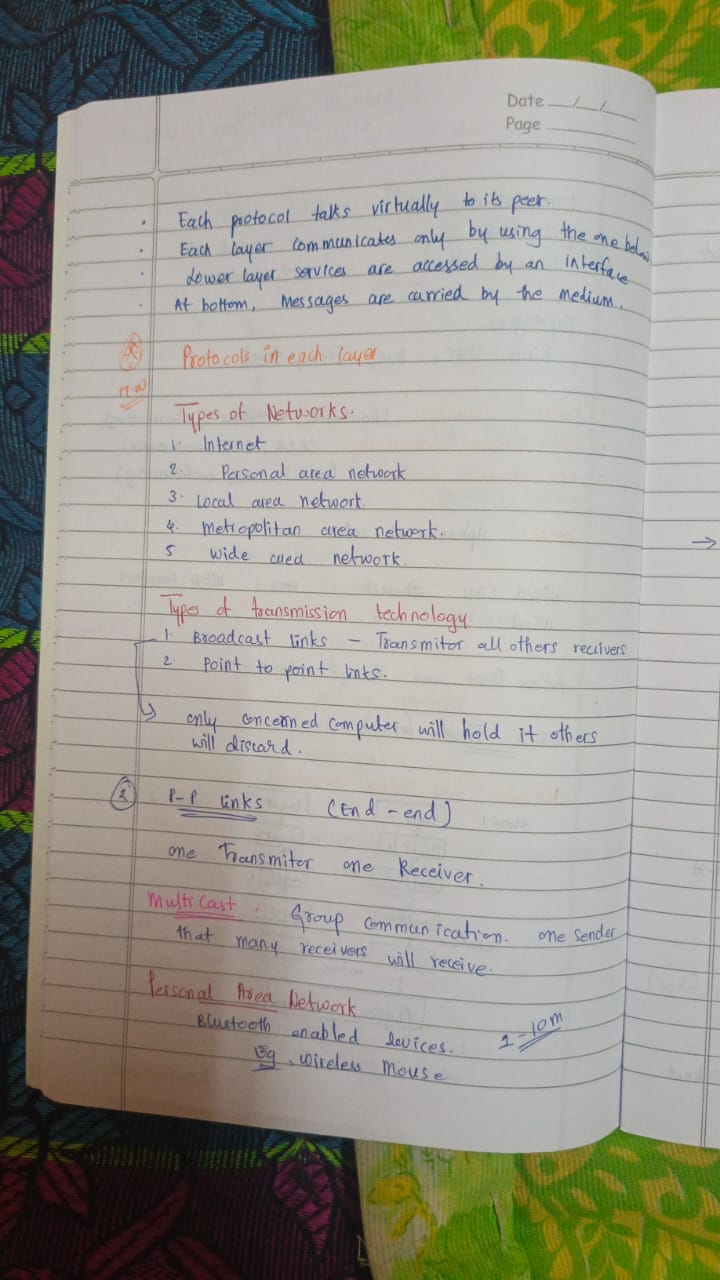 Date __/__/__
Page ______
. Each protocol talks virtually to its peer.
. Each layer communicates only by using the one below
. Lower layer services are accessed by an interface
. At bottom, Messages are carried by the medium.
Protocols in each layer
H.W
Types of Networks.
1. Internet
2. Personal area network
3. Local area network.
4. Metropolitan area network.
5 wide area network.
Types of transmission technology
1. Broadcast links - Transmitor all others recivers
2. Point to point links.
↳ only concerned computer will hold it others
will discard.
② P-P links (End - end)
one Transmitor one Receiver.
Multi Cast : Group Communication. one sender
that many receivers will receive.
Personal Area Network
Bluetooth enabled devices. 1-10m
Eg. wireless Mouse
→